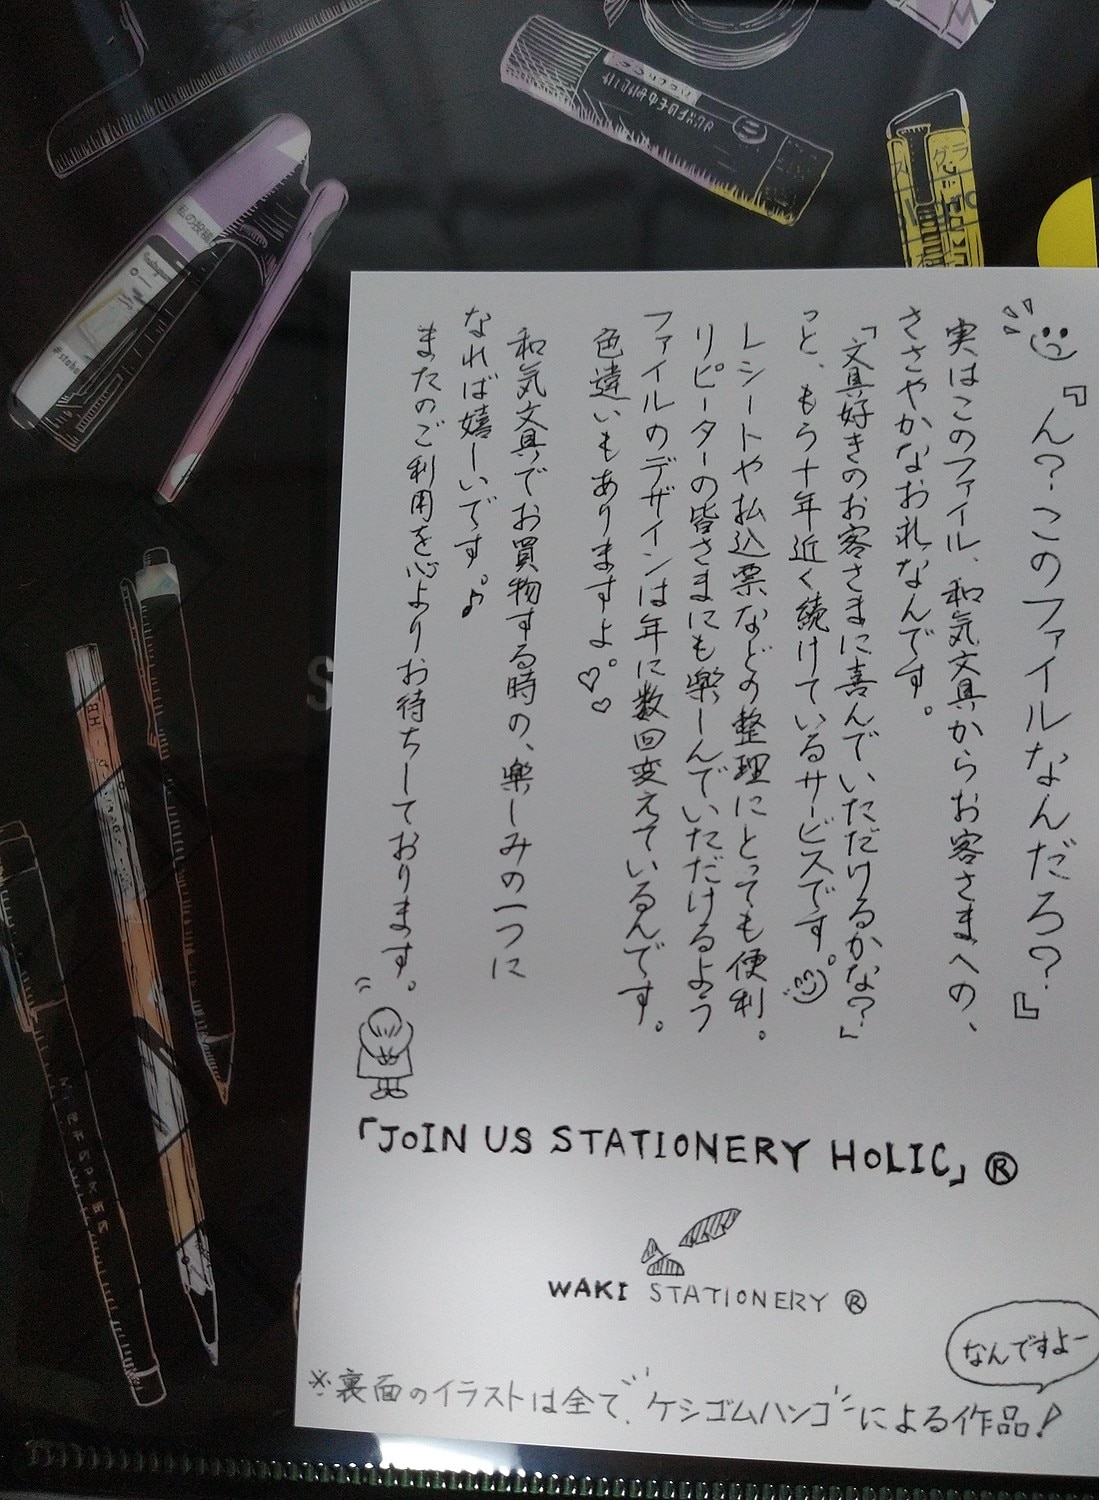 『ん？このファイルなんだろ？』
実はこのファイル、和気文具からお客さまへの、
ささやかなお礼なんです。
「文具好きのお客さまに喜んでいただけるかな？」
っと、もう十年近く続けているサービスです。
レシートや払込票などの整理にとっても便利。
リピーターの皆さまにも楽しんでいただけるよう
ファイルのデザインは年に数回変えているんです。
色違いもありますよ。♡♡
和気文具でお買物する時の、楽しみの一つに
なれば嬉しいです。♪
またのご利用を心よりお待ちしております。
「JOIN US STATIONERY HOLIC」®
WAKI STATIONERY ®
なんですよー
※裏面のイラストは全て、ケシゴムハンコによる作品！
私の投稿
グラ
ス